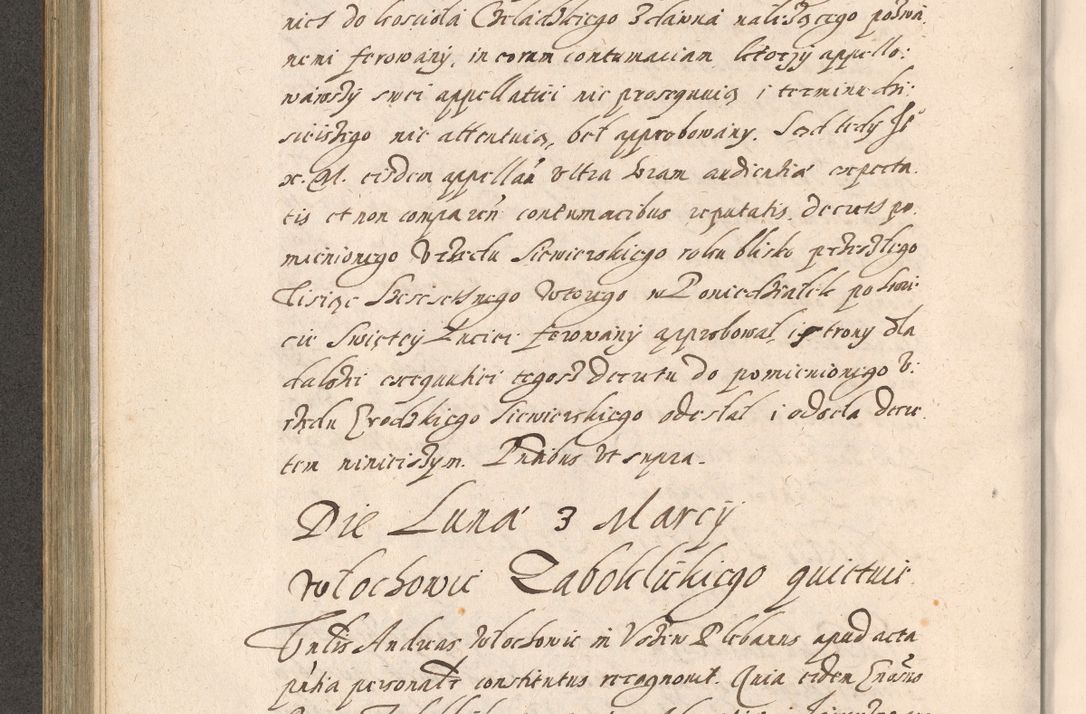 nics do kosciola Czeladzkiego zdawna należącego pozwa
nemi ferowany, in eorum contumaciam ktorzy appello:
wawszy swei appellatiei nie prosequuią i terminu dzi:
sieiszego nie attentuią, beł approbowany. Sąd tedy Je
x. M. eisdem appellań Ultra horam audientiae expecta
tis et non comparen contumacibus reputatis. decret po
mienionego Urzędu Siewierskiego roku blisko przeszlego
Tisiąc szescsetnego wtorego w Poniedziałek po swie
cie Swiętey Luciei ferowany approbował, i strony dla
dalszei exequutiei tegosz decretu do pomienionego U:
rzędu Grodzkiego Siewierskiego odesłal i odseła decre
tem ninieiszym. Pntibus ut supra.
Die Lunae 3 Marcÿ
Włochowic Zaboklickiego quietuie
Vnlis Andreas Włochowic in Plebanus apud acta
pntia personalr constitutus recognovit. Quia eidem Gnosus